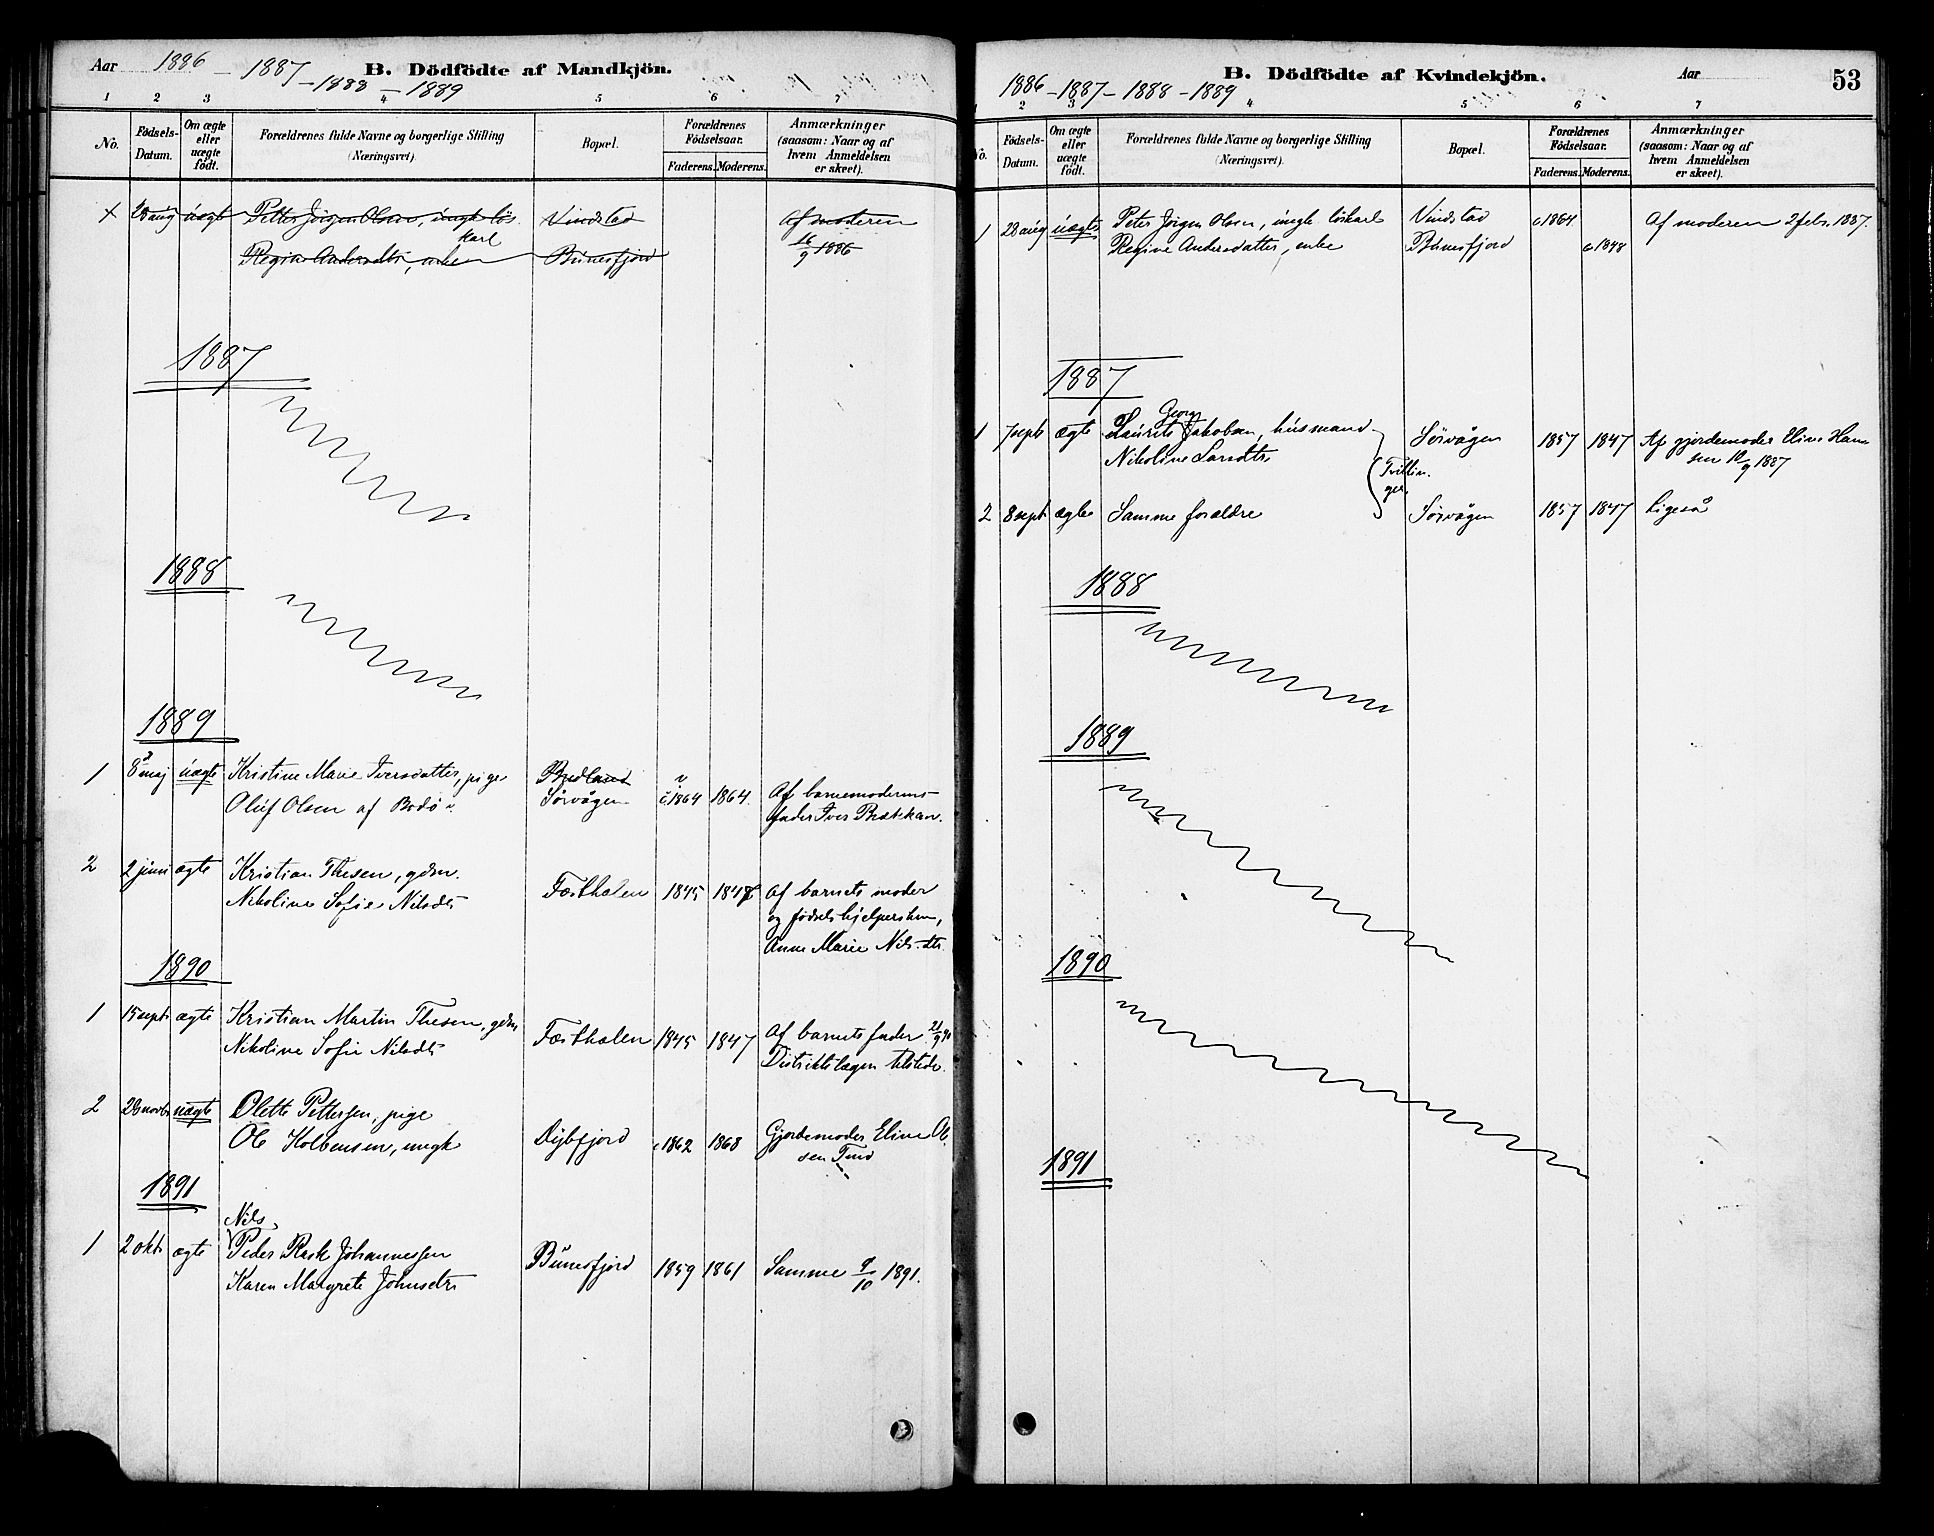 Aar 1886 - 1887 - 1888 - 1889
B. Dödfödte af Mandkjön.
1 2 3 4 5 6 7
No.
Födsels-Datum.
Om ægte eller uægte født.
Forældrenes fulde Navne og borgerlige Stilling
(Næringsvei).
Bopæl.
Forældrenes Födselsaar.
Faderens. Moderens.
Anmærkninger
(saasom: Naar og af
hvem Anmeldelsen
er skeet).
x 28 aug uægt Petter Jørgen Olsen, ungk løs Vindstad Af moderen
karl
Regine Andersdtr, enke Bunesfjord 16/9 1886
1887
1888
1889
1 8 maj uægte Kristine Marie Iversdatter, pige Bredland
Oluf Olsen af Bodø Sørvågen c 1864 1864. Af barnemoderens
fader Iver
2 2 juni ægte Kristian Thesen, gdm.
Nikoline Sofie Nilsdtr Fæsthælen 1845 1847 Af barnets moder
og fødselshjelpersken,
Anne Marie Nils.dtr.
1890
1 15 sept ægte Kristian Martin Thesen, gdm
Nikoline Sofie Nilsdtr Fæsthælen 1845 1847 Af barnets fader 21/9 90
Distriktslægen tilstede.
2 28 novbr uægte Olette Pettersen, pige
Ole Kolbensen, ungk Djybfjord c 1862 1868 Gjordemoder Eline Ol.
sen Tind
1891
Nils
1 2 okt ægte Peder Rask Johannessen
Karen Margrete Johnsdtr Bunesfjord 1859 1861 Samme 9/10 1891.
B. Dödfödte af Kvindekjön.
Aar
53
1886 - 1887 - 1888 - 1889
1 2 3 4 5 6 7
No.
Födsels-Datum.
Om ægte eller uægte födt.
Forældrenes fulde Navne og borgerlige Stilling
(Næringsvei).
Bopæl.
Forældrenes Födselsaar.
Faderens. Moderens.
Anmærkninger
(saasom: Naar og af
hvem Anmeldelsen
er skeet).
1 28 aug uægte Peter Jørgen Olsen, ungk løskarl Vindstad c 1864 Af moderen 2 febr. 1887.
Regine Andersdatter, enke Bunesfjord c 1848
1887
Georg
1 7 sept ægte Laurits Jakobsen, husmand Sørvågen 1857 1847 Af gjordemoder Eline Han
Nikoline Larsdtr sen 10/9 1887
Tvillin.
ger.
2 8 sept ægte Samme forældre Sørvågen 1857 1847 Ligeså
1888
1889
1890
1891